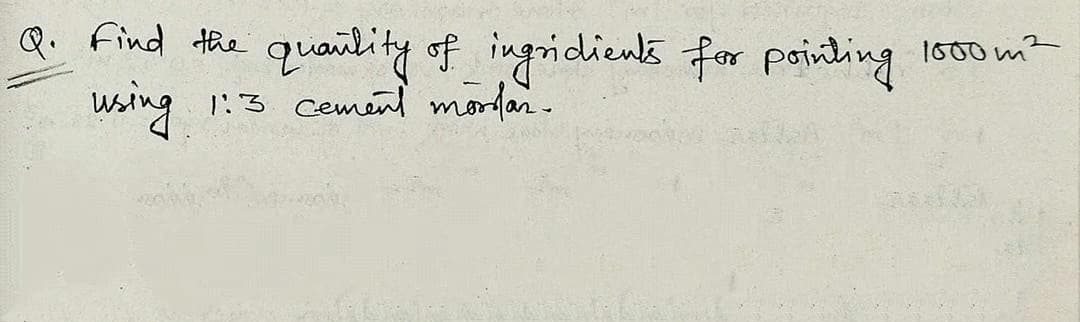 Q. Find the quantity of ingridients for pointing 1000 m²
using 1:3 cement mortar.